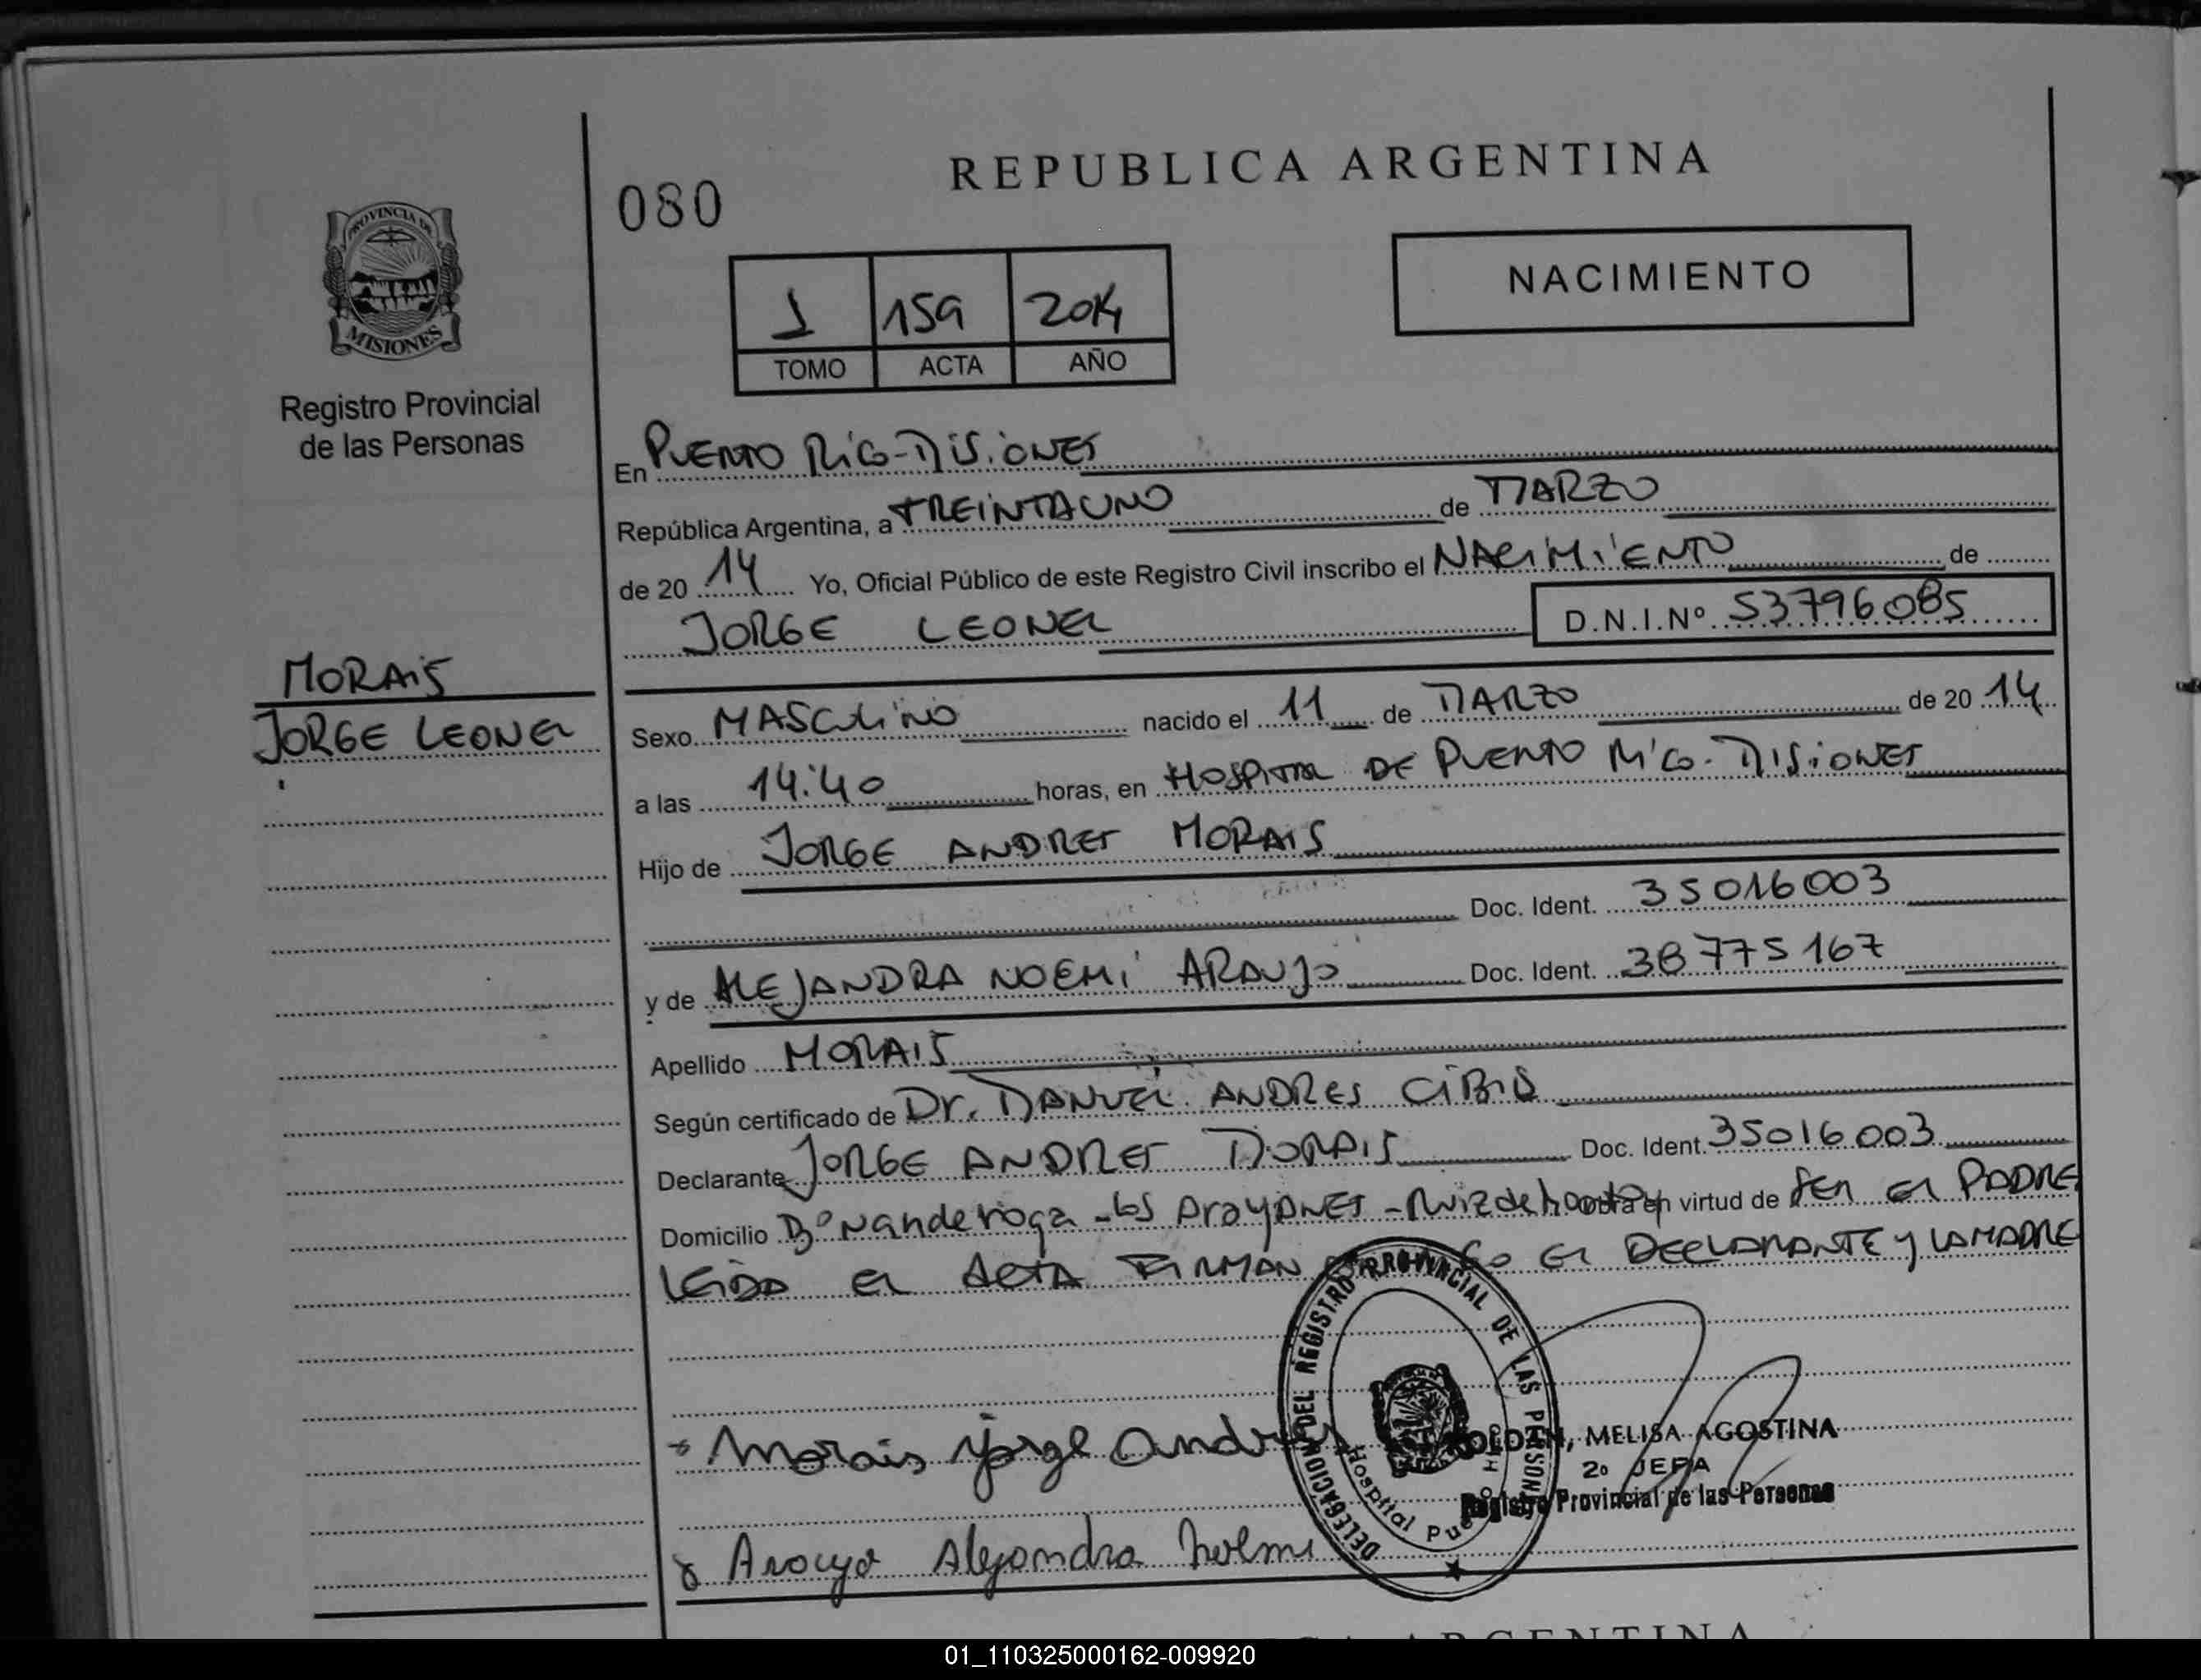 REPUBLICA ARGENTINA
080
NACIMIENTO
PROVINCIA DE
MISIONES
1 159 2014
TOMO ACTA AÑO
Registro Provincial
de las Personas
En PUERTO RICO-MISIONES
República Argentina, a TREINTAUNO de MARZO
de 20 14 Yo, Oficial Público de este Registro Civil inscribo el NACIMIENTO de
JORGE LEONEL D.N.I.Nº 53796085
MORAIS
JORGE LEONEL
Sexo MASCULINO nacido el 11 de MARZO de 20 14
a las 14:40 horas, en HOSPITAL DE PUERTO RICO-MISIONES
Hijo de JORGE ANDRES MORAIS
Doc. Ident. 35016003
y de ALEJANDRA NOEMI ARAUJO Doc. Ident. 38775167
Apellido MORAIS
Según certificado de Dr. MANUEL ANDRES
Declarante JORGE ANDRES MORAIS Doc. Ident. 35016003
Domicilio Bº Ñanderoga - los ArayANES - Ruiz de Montoya en virtud de SER EL PADRE
LEIDA EL ACTA FIRMAN EL DECLARANTE y LA MADRE
DELEGACION DEL REGISTRO PROVINCIAL DE LAS PERSONAS
Hospital
* Morais jorge Andres
ROLDAN, MELISA AGOSTINA
2º JEFA
Registro Provincial de las Personas
x Araujo Alejandra Noemi
ARGENTINA
01_110325000162-009920